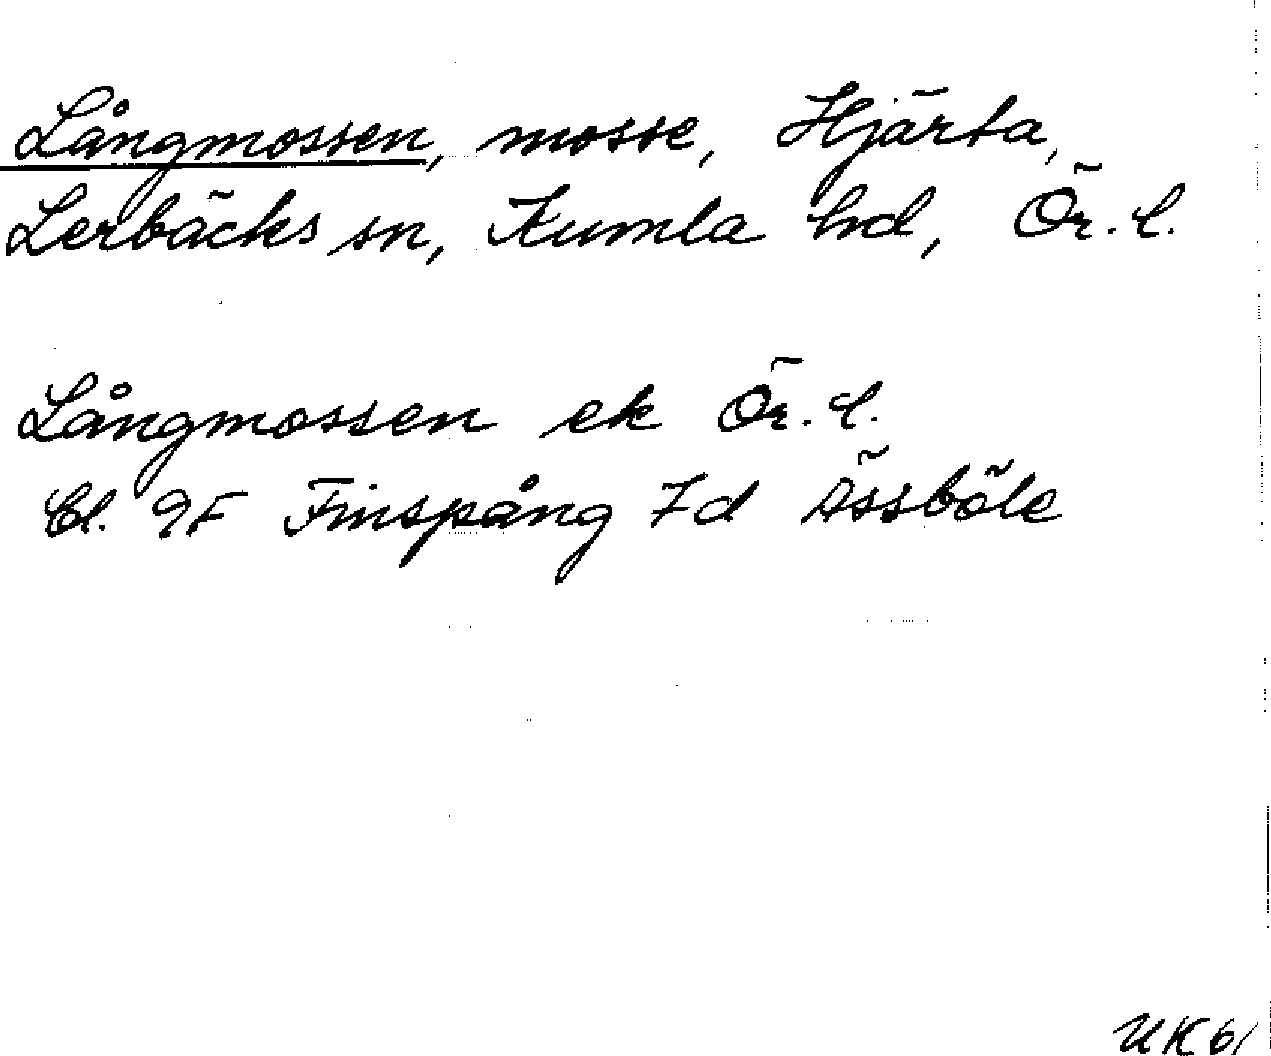 Långmossen, mosse, Hjärta,
Lerbäcks sn, Kumla hd, Ör. l.
Långmossen ek Ör. l.
Bl. 9F Finspång 7d Ässböle
UK 61